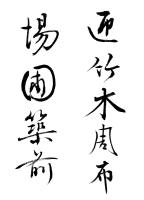 匝竹木周布
場圃築前